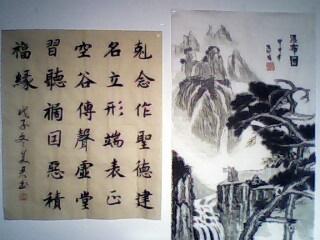 剋念作聖德建
名立形端表正
空谷傳聲虛堂
習聽禍因惡積
福緣
戊子冬
瀑布圖